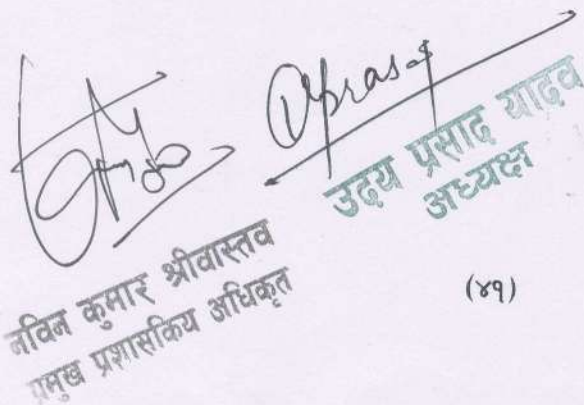 नविन कुमार श्रीवास्तव
प्रमुख प्रशासकिय अधिकृत
उदय प्रसाद यादव
अध्यक्ष
(४१)